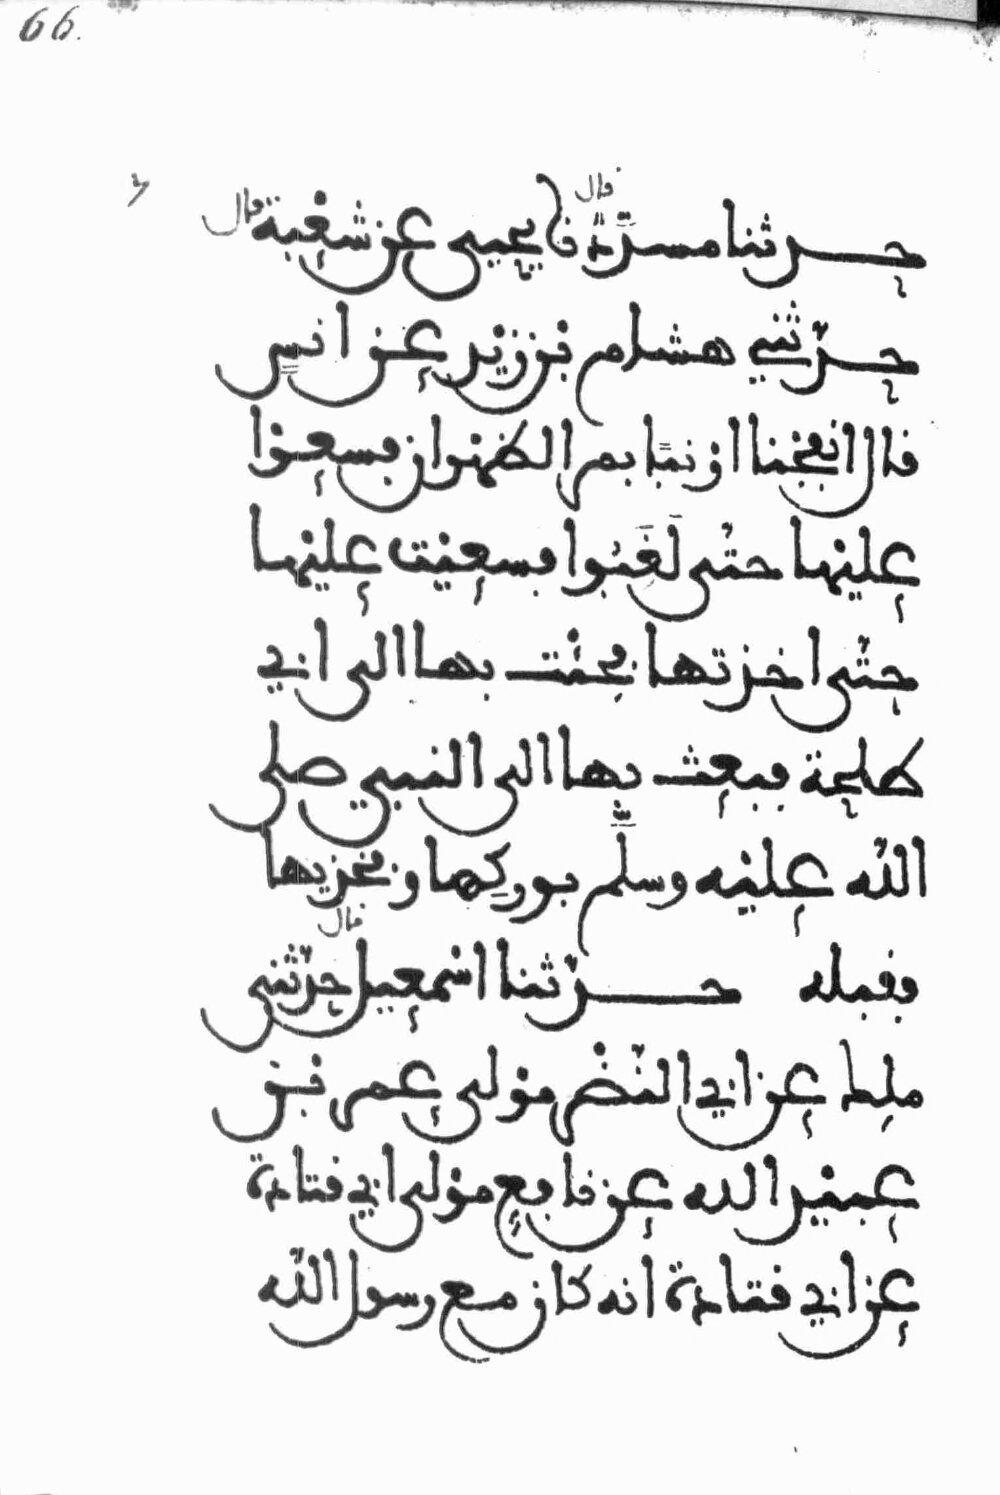 66.
قال
حدثنا مسدد نا يحيى عن شعبة قال
حدثني هشام بن زيد عن انس
قال انفجنا ارنبا بمر الظهران فسعوا
عليها حتى لغبوا فسعيت عليها
حتى اخذتها فجئت بها الى ابي
طلحة فبعث بها الى النبي صلى
الله عليه وسلم بوركها وفخذيها
قال
فقبله حدثنا اسمعيل حدثني
ملك عن ابي النضر مولى عمر بن
عبيد الله عن نافع مولى ابي قتادة
عن ابي قتادة انه كان مع رسول الله